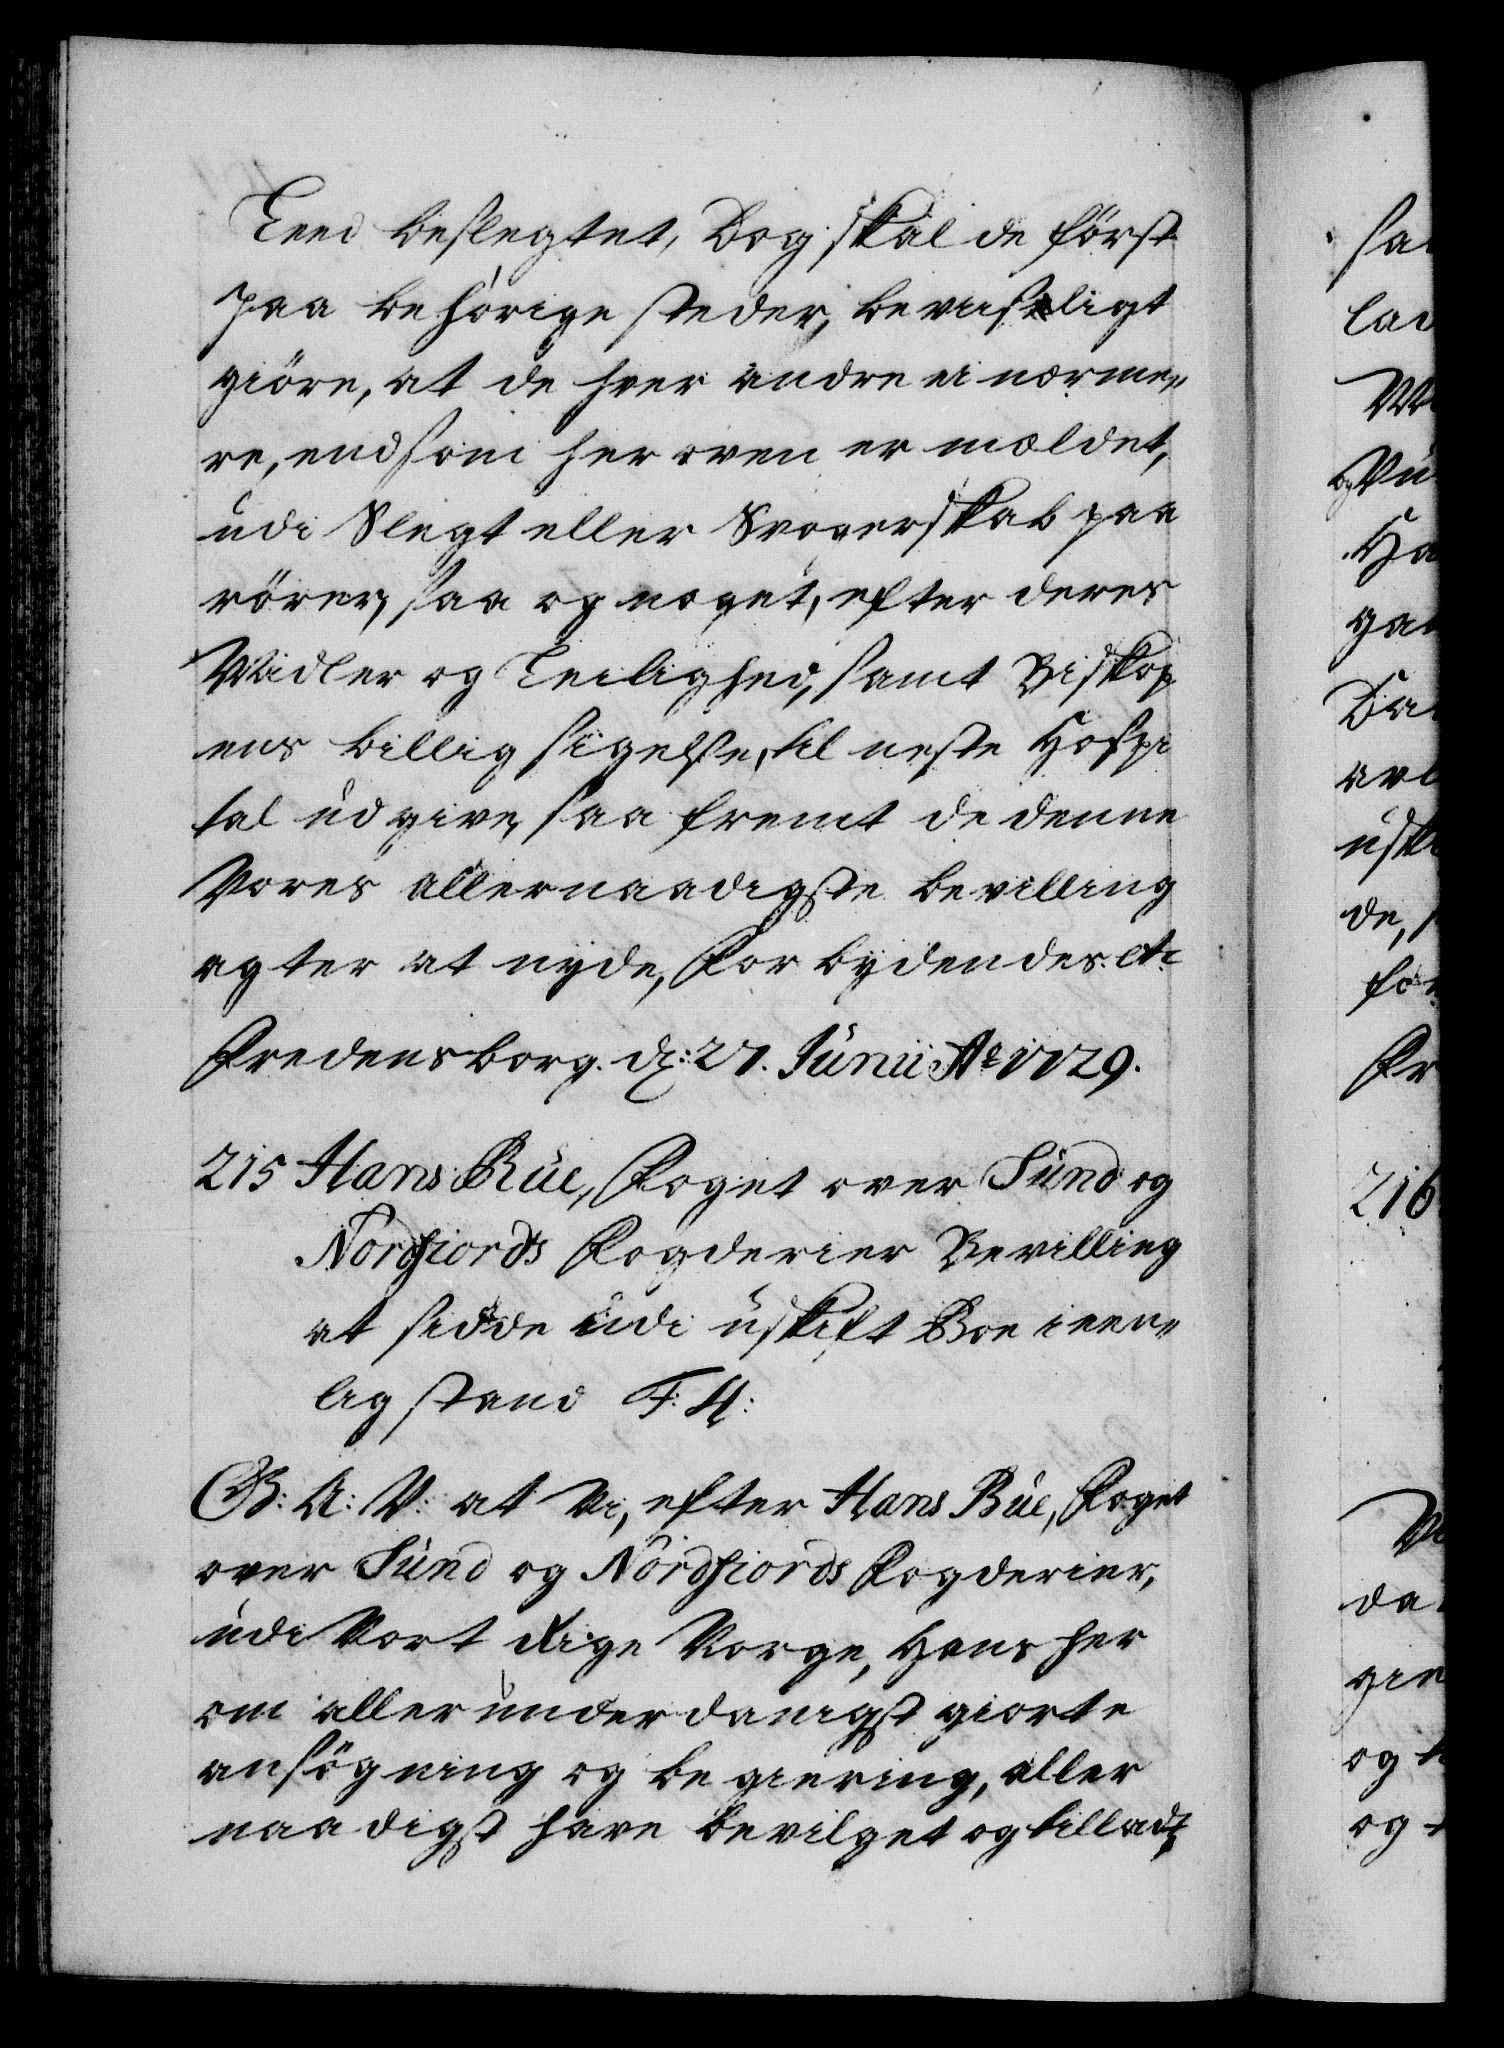 Leed beslegtet, Dog skal de först
paa behörige steder, beviisligt
giöre, at de hver andre ei nærme„
re, end som her oven er meldet,
udi Slegt eller Svogerskab paa
rörer, saa og noget, efter deres
Midler og Leilighed, samt Biskop
ens billig sigelse, til neste Hospi
tal udgive, saa fremt de denne
Vores allernaadigste bevilling
agter at nyde, Forbydendes. etc
Fredensborg. d: 27. Junii Ao 1729.
215 Hans Büe, Foget over Sund og
Nordfiords Fogderier Bevilling
at sidde udi uskift Boe i een„
lig stand F. 4:
G: A: V: at Vi, efter Hans Büe, Foget
over Sund og Nordfiords Fogderier,
udi Vort Rige Norge, Hans her
om allerunderdanigst giorte
ansögning og begiering, aller
naadigst have bevilget og tilladt,
216